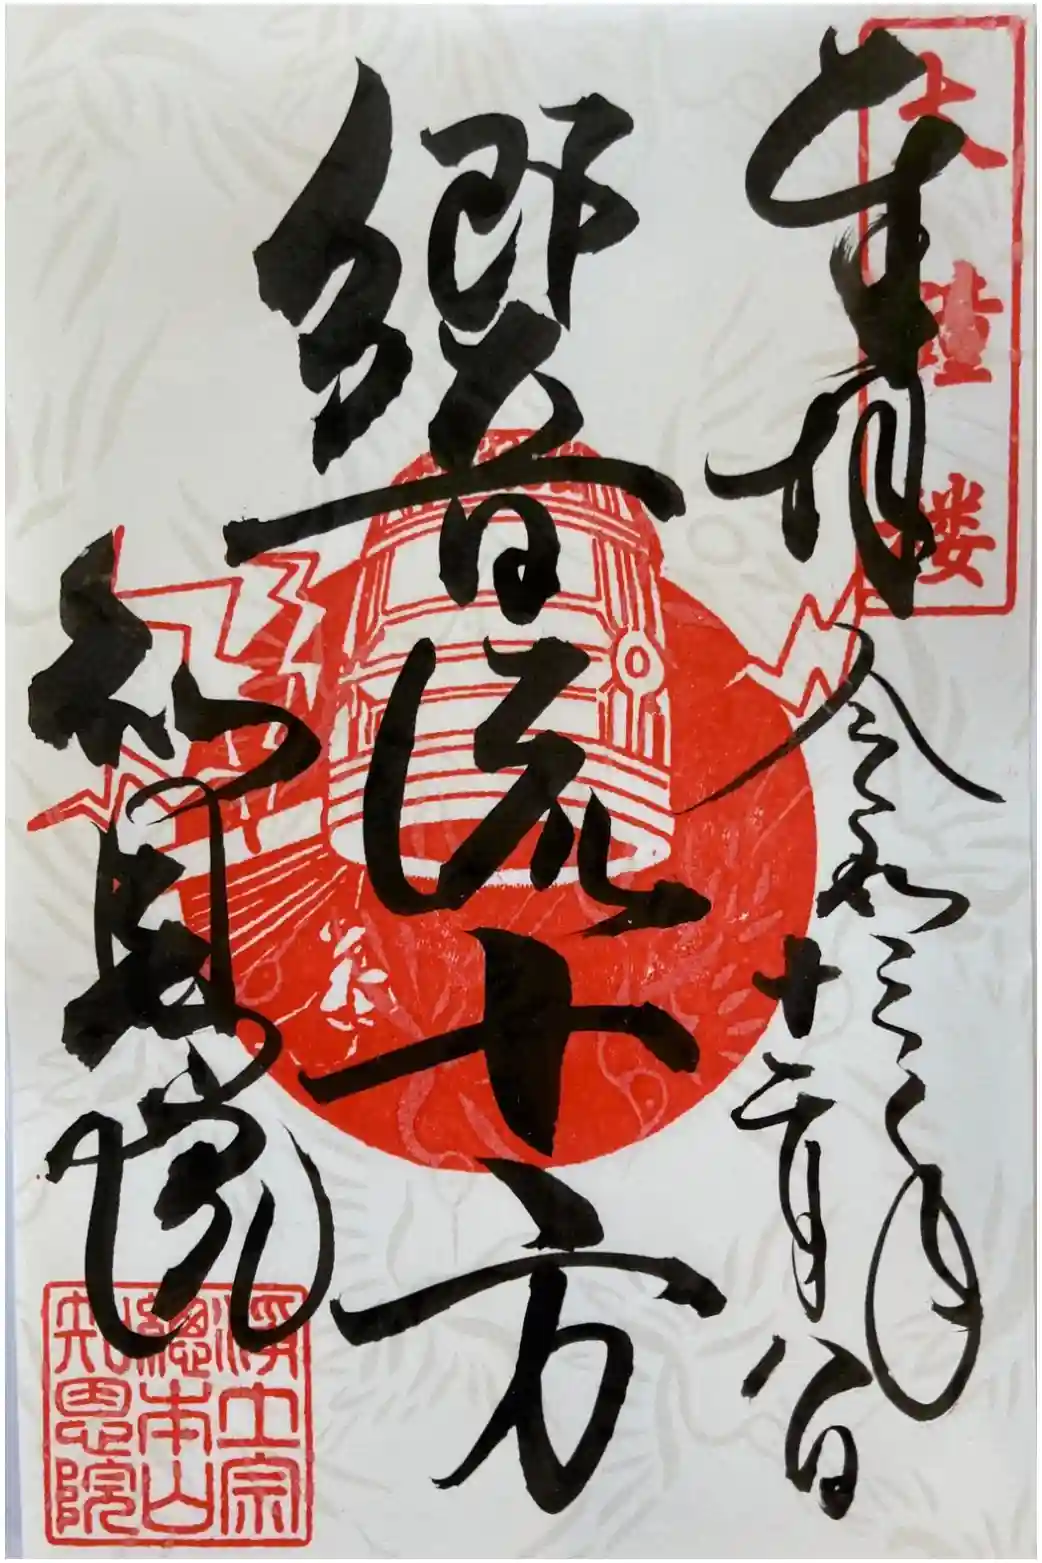 大鐘楼
奉拝
令和三年
十二月八日
響流十方
知恩院
淨土宗
總本山
知恩院